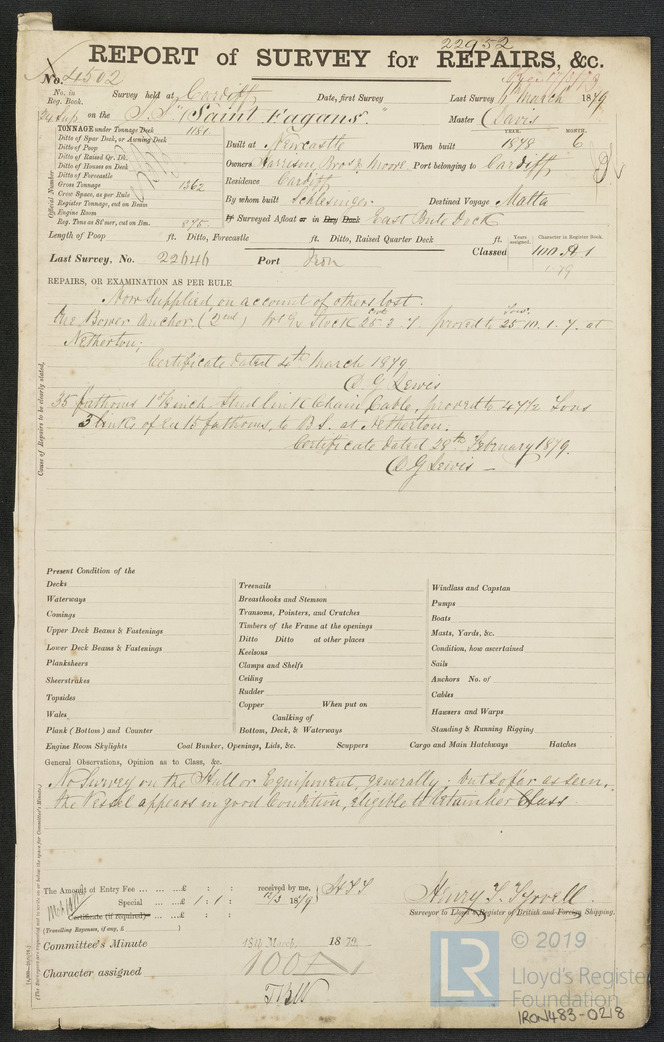 22952
REPORT of SURVEY for REPAIRS, &c.
No. 4502
No. in Reg. Book.
Survey held at Cardiff Date, first Survey Last Survey 6th March 1879
24 Sup on the S.S. "Saint Fagans." Master Davis
TONNAGE under Tonnage Deck 1181
Ditto of Spar Deck, or Awning Deck
Ditto of Poop
Ditto of Raised Qr. Dk.
Ditto of Houses on Deck
Ditto of Forecastle
Gross Tonnage 1362
Crew Space, as per Rule
Register Tonnage, cut on Beam
Engine Room
Reg. Tons as St'mer, cut on Bm. 875
Official Number
YEAR. MONTH.
Built at Newcastle When built 1878 6
Owners Harrison, Bros & Moore Port belonging to Cardiff
Residence Cardiff
By whom built Schlesinger Destined Voyage Malta
If Surveyed Afloat or in Dry Dock East Bute Dock
Length of Poop ft. Ditto, Forecastle ft. Ditto, Raised Quarter Deck ft.
Years assigned. Character in Register Book
Last Survey, No. 22646 Port Iron Classed 100 A 1
1.79
REPAIRS, OR EXAMINATION AS PER RULE
Now Supplied on account of others lost.
One Bower Anchor (2nd) Wt Ex Stock 25.3.7. proved to 25.10.1.7. at
cwt Tons
Netherton;
Certificate dated 4th March 1879
D G Lewis
35 fathoms inch Stud link Chain Cable, proved to 47½ Tons
3 links of ea 15 fathoms, to B.S. at Netherton.
Certificate dated 28th February 1879.
D G Lewis
Cause of Repairs to be clearly stated,
Present Condition of the
Decks
Waterways
Comings
Upper Deck Beams & Fastenings
Lower Deck Beams & Fastenings
Planksheers
Sheerstrakes
Topsides
Wales
Plank (Bottom) and Counter
Treenails
Breasthooks and Stemson
Transoms, Pointers, and Crutches
Timbers of the Frame at the openings
Ditto Ditto at other places
Keelsons
Clamps and Shelfs
Ceiling
Rudder
Copper When put on
Caulking of
Bottom, Deck, & Waterways
Windlass and Capstan
Pumps
Boats
Masts, Yards, &c.
Condition, how ascertained
Sails
Anchors No. of
Cables
Hawsers and Warps
Standing & Running Rigging
Engine Room Skylights Coal Bunker, Openings, Lids, &c. Scuppers Cargo and Main Hatchways Hatches
General Observations, Opinion as to Class, &c.
No Survey on the Hull or Equipment, generally - but so far as seen,
the Vessel appears in good Condition, eligible to retain her Class
The Amount of Entry Fee ... ... ...£ : : received by me,
Special ... ...£ 1 : 1 : 12/3 1879
Certificate (if required)...£ : :
(Travelling Expenses, if any, £ )
HTT
Henry T. Tyrrell.
Surveyor to Lloyd's Register of British and Foreign Shipping.
Committee's Minute 18th March 1879.
Character assigned 100 A 1
(The Surveyors are requested not to write on or below the space for Committee's Minute.)
© 2019
LR
Lloyd's Register
Foundation
IRON483-0218